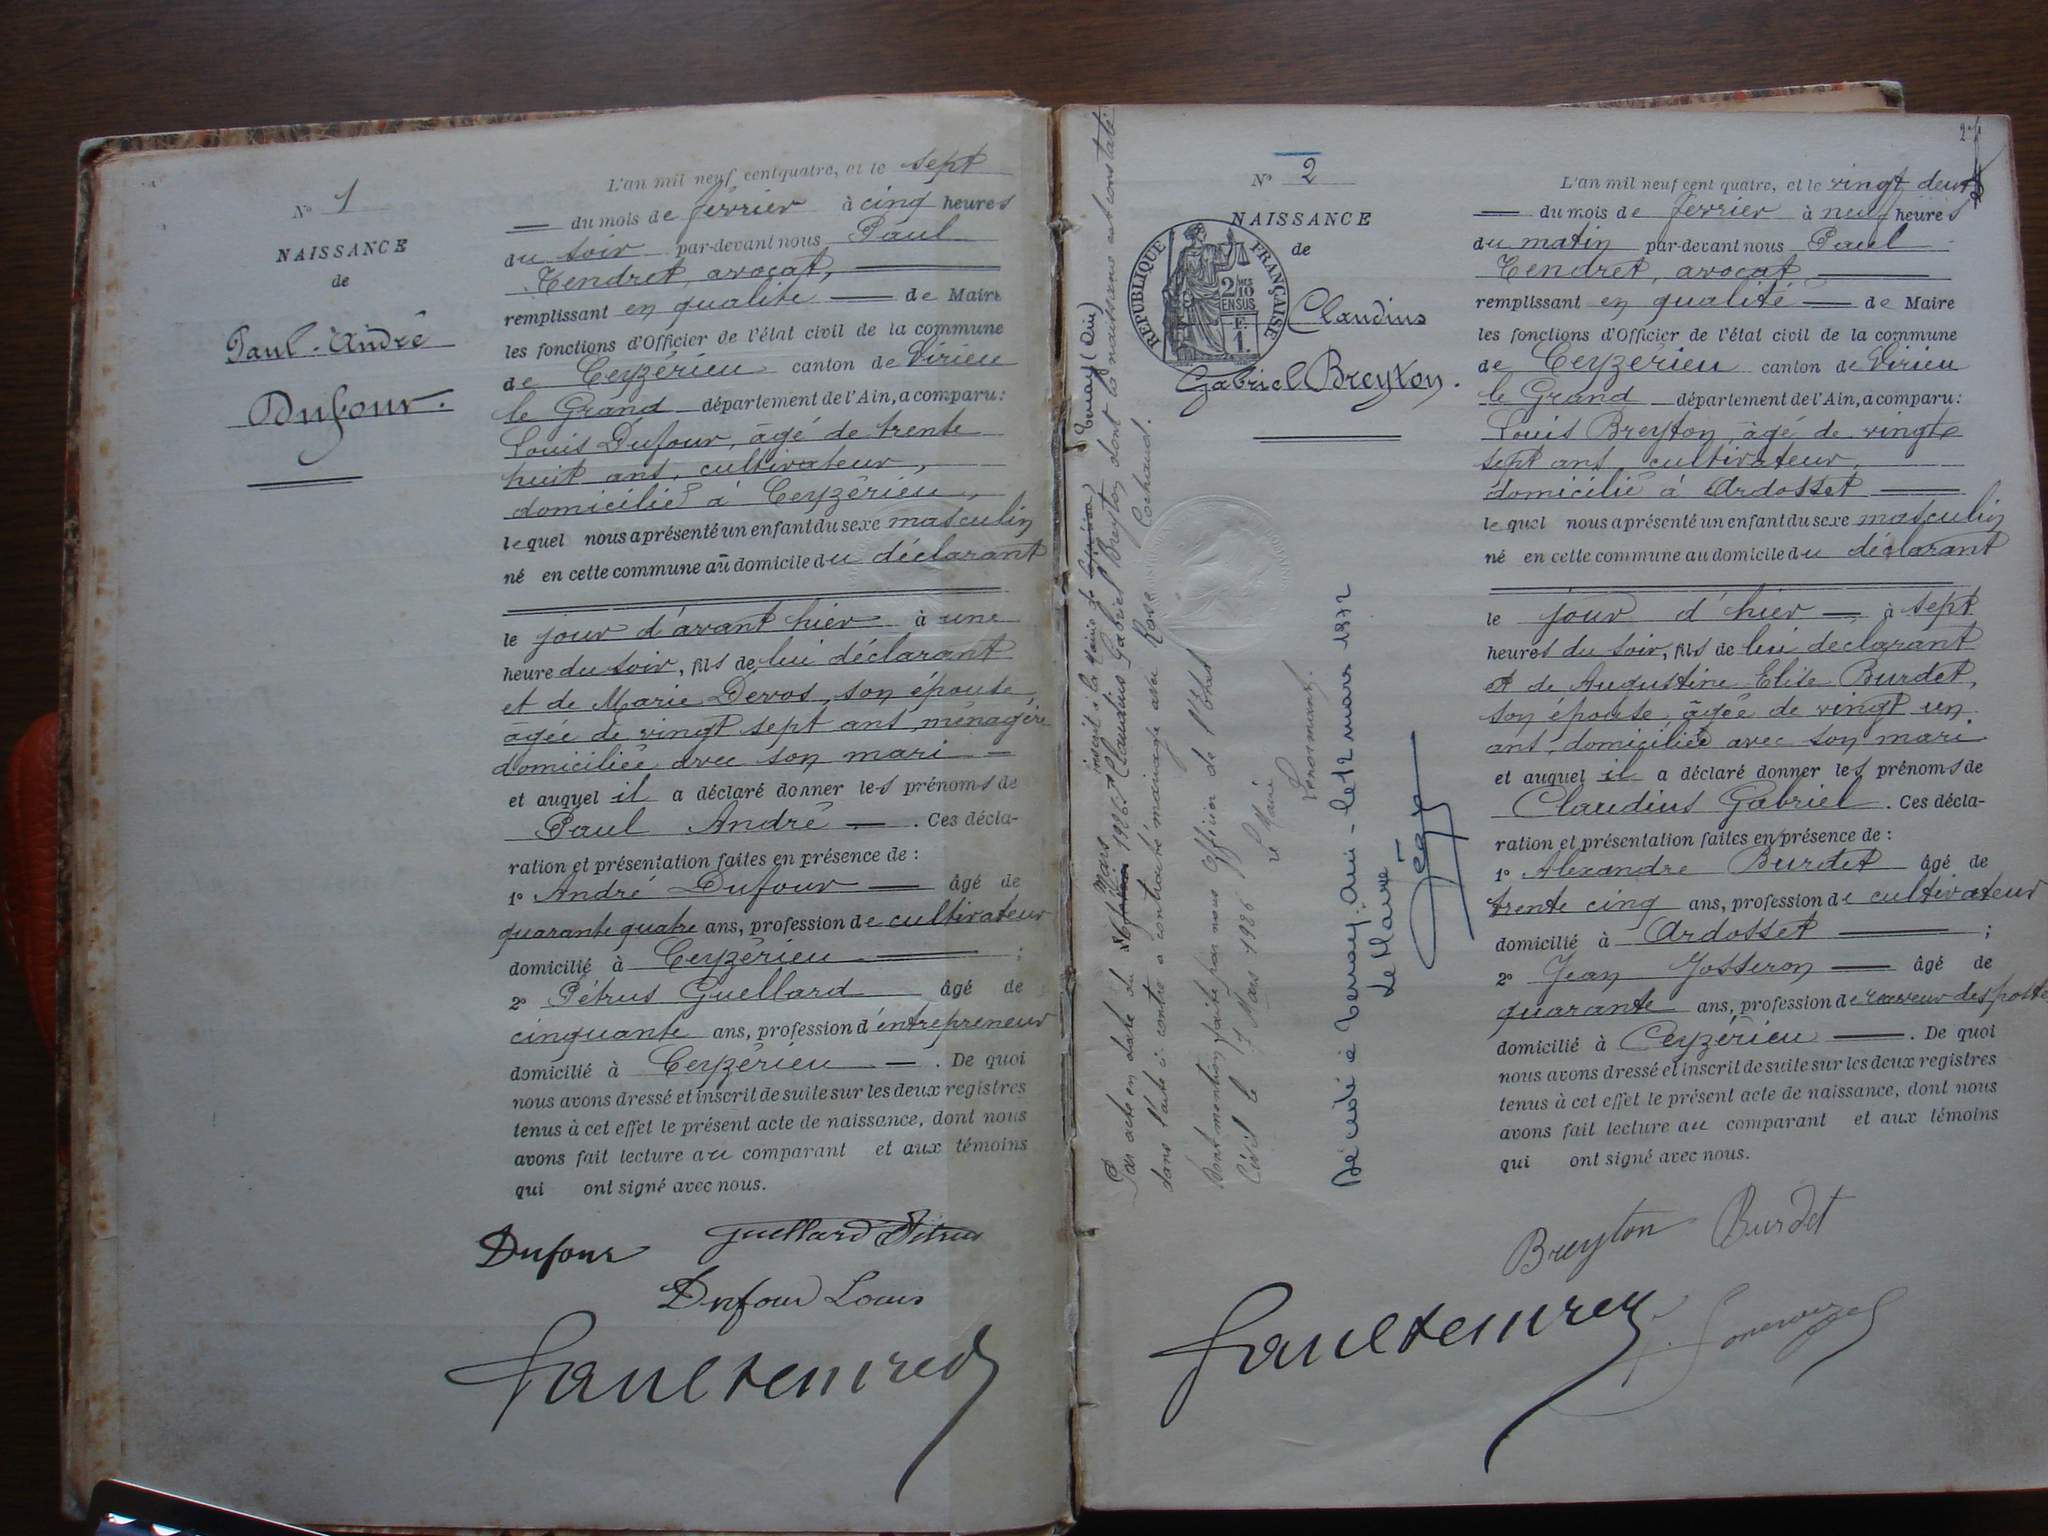 N° 1
NAISSANCE
de
Paul-André
Dufour.
L'an mil neuf cent quatre, et le sept
du mois de février à cinq heures
du soir par-devant nous Paul
Tendret, avocat,
remplissant en qualité de Maire
les fonctions d'Officier de l'état civil de la commune
de Ceyzérieu canton de Virieu
le Grand département de l'Ain, a comparu:
Louis Dufour, âgé de trente
huit ans, cultivateur,
domicilié à Ceyzérieu,
lequel nous a présenté un enfant du sexe masculin
né en cette commune au domicile du déclarant
le jour d'avant hier à une
heure du soir, fils de lui déclarant
et de Marie Devos, son épouse,
âgée de vingt sept ans, ménagère
domiciliée avec son mari
et auquel il a déclaré donner les prénoms de
Paul André. Ces décla-
ration et présentation faites en présence de:
1° André Dufour âgé de
quarante quatre ans, profession de cultivateur
domicilié à Ceyzérieu;
2° Pétrus Guellard âgé de
cinquante ans, profession d'entrepreneur
domicilié à Ceyzérieu. De quoi
nous avons dressé et inscrit de suite sur les deux registres
tenus à cet effet le présent acte de naissance, dont nous
avons fait lecture au comparant et aux témoins
qui ont signé avec nous.
Dufour Guellard Pétrus
Dufour Louis
Paul Tendret
N° 2
NAISSANCE
de
REPUBLIQUE FRANÇAISE
2/10 EN SUS
Claudius
Gabriel Breyton.
Par acte en date du 6 Mars 1926 inscrit à la Mairie de Ternay (Ain)
Claudius Gabriel Breyton dont la naissance est constatée
dans l'acte ci contre a contracté mariage avec Rose Cochaud.
Dont mention faite par nous Officier de l'Etat
Civil le 7 Mars 1926 le Maire
Décédé à Ternay, Ain - le 12 mars 1972
Le Maire
L'an mil neuf cent quatre, et le vingt deux
du mois de février à neuf heures
du matin par-devant nous Paul
Tendret, avocat
remplissant en qualité de Maire
les fonctions d'Officier de l'état civil de la commune
de Ceyzérieu canton de Virieu
le Grand département de l'Ain, a comparu:
Louis Breyton, âgé de vingt
sept ans, cultivateur,
domicilié à Ardosset
lequel nous a présenté un enfant du sexe masculin
né en cette commune au domicile du déclarant
le jour d'hier à sept
heures du soir, fils de lui déclarant
et de Augustine Elise Burdet,
son épouse, âgée de vingt un
ans, domiciliée avec son mari
et auquel il a déclaré donner les prénoms de
Claudius Gabriel. Ces décla-
ration et présentation faites en présence de:
1° Alexandre Burdet âgé de
trente cinq ans, profession de cultivateur
domicilié à Ardosset;
2° Jean Josseron âgé de
quarante ans, profession de receveur des postes
domicilié à Ceyzérieu. De quoi
nous avons dressé et inscrit de suite sur les deux registres
tenus à cet effet le présent acte de naissance, dont nous
avons fait lecture au comparant et aux témoins
qui ont signé avec nous.
Breyton Burdet
Paul Tendret